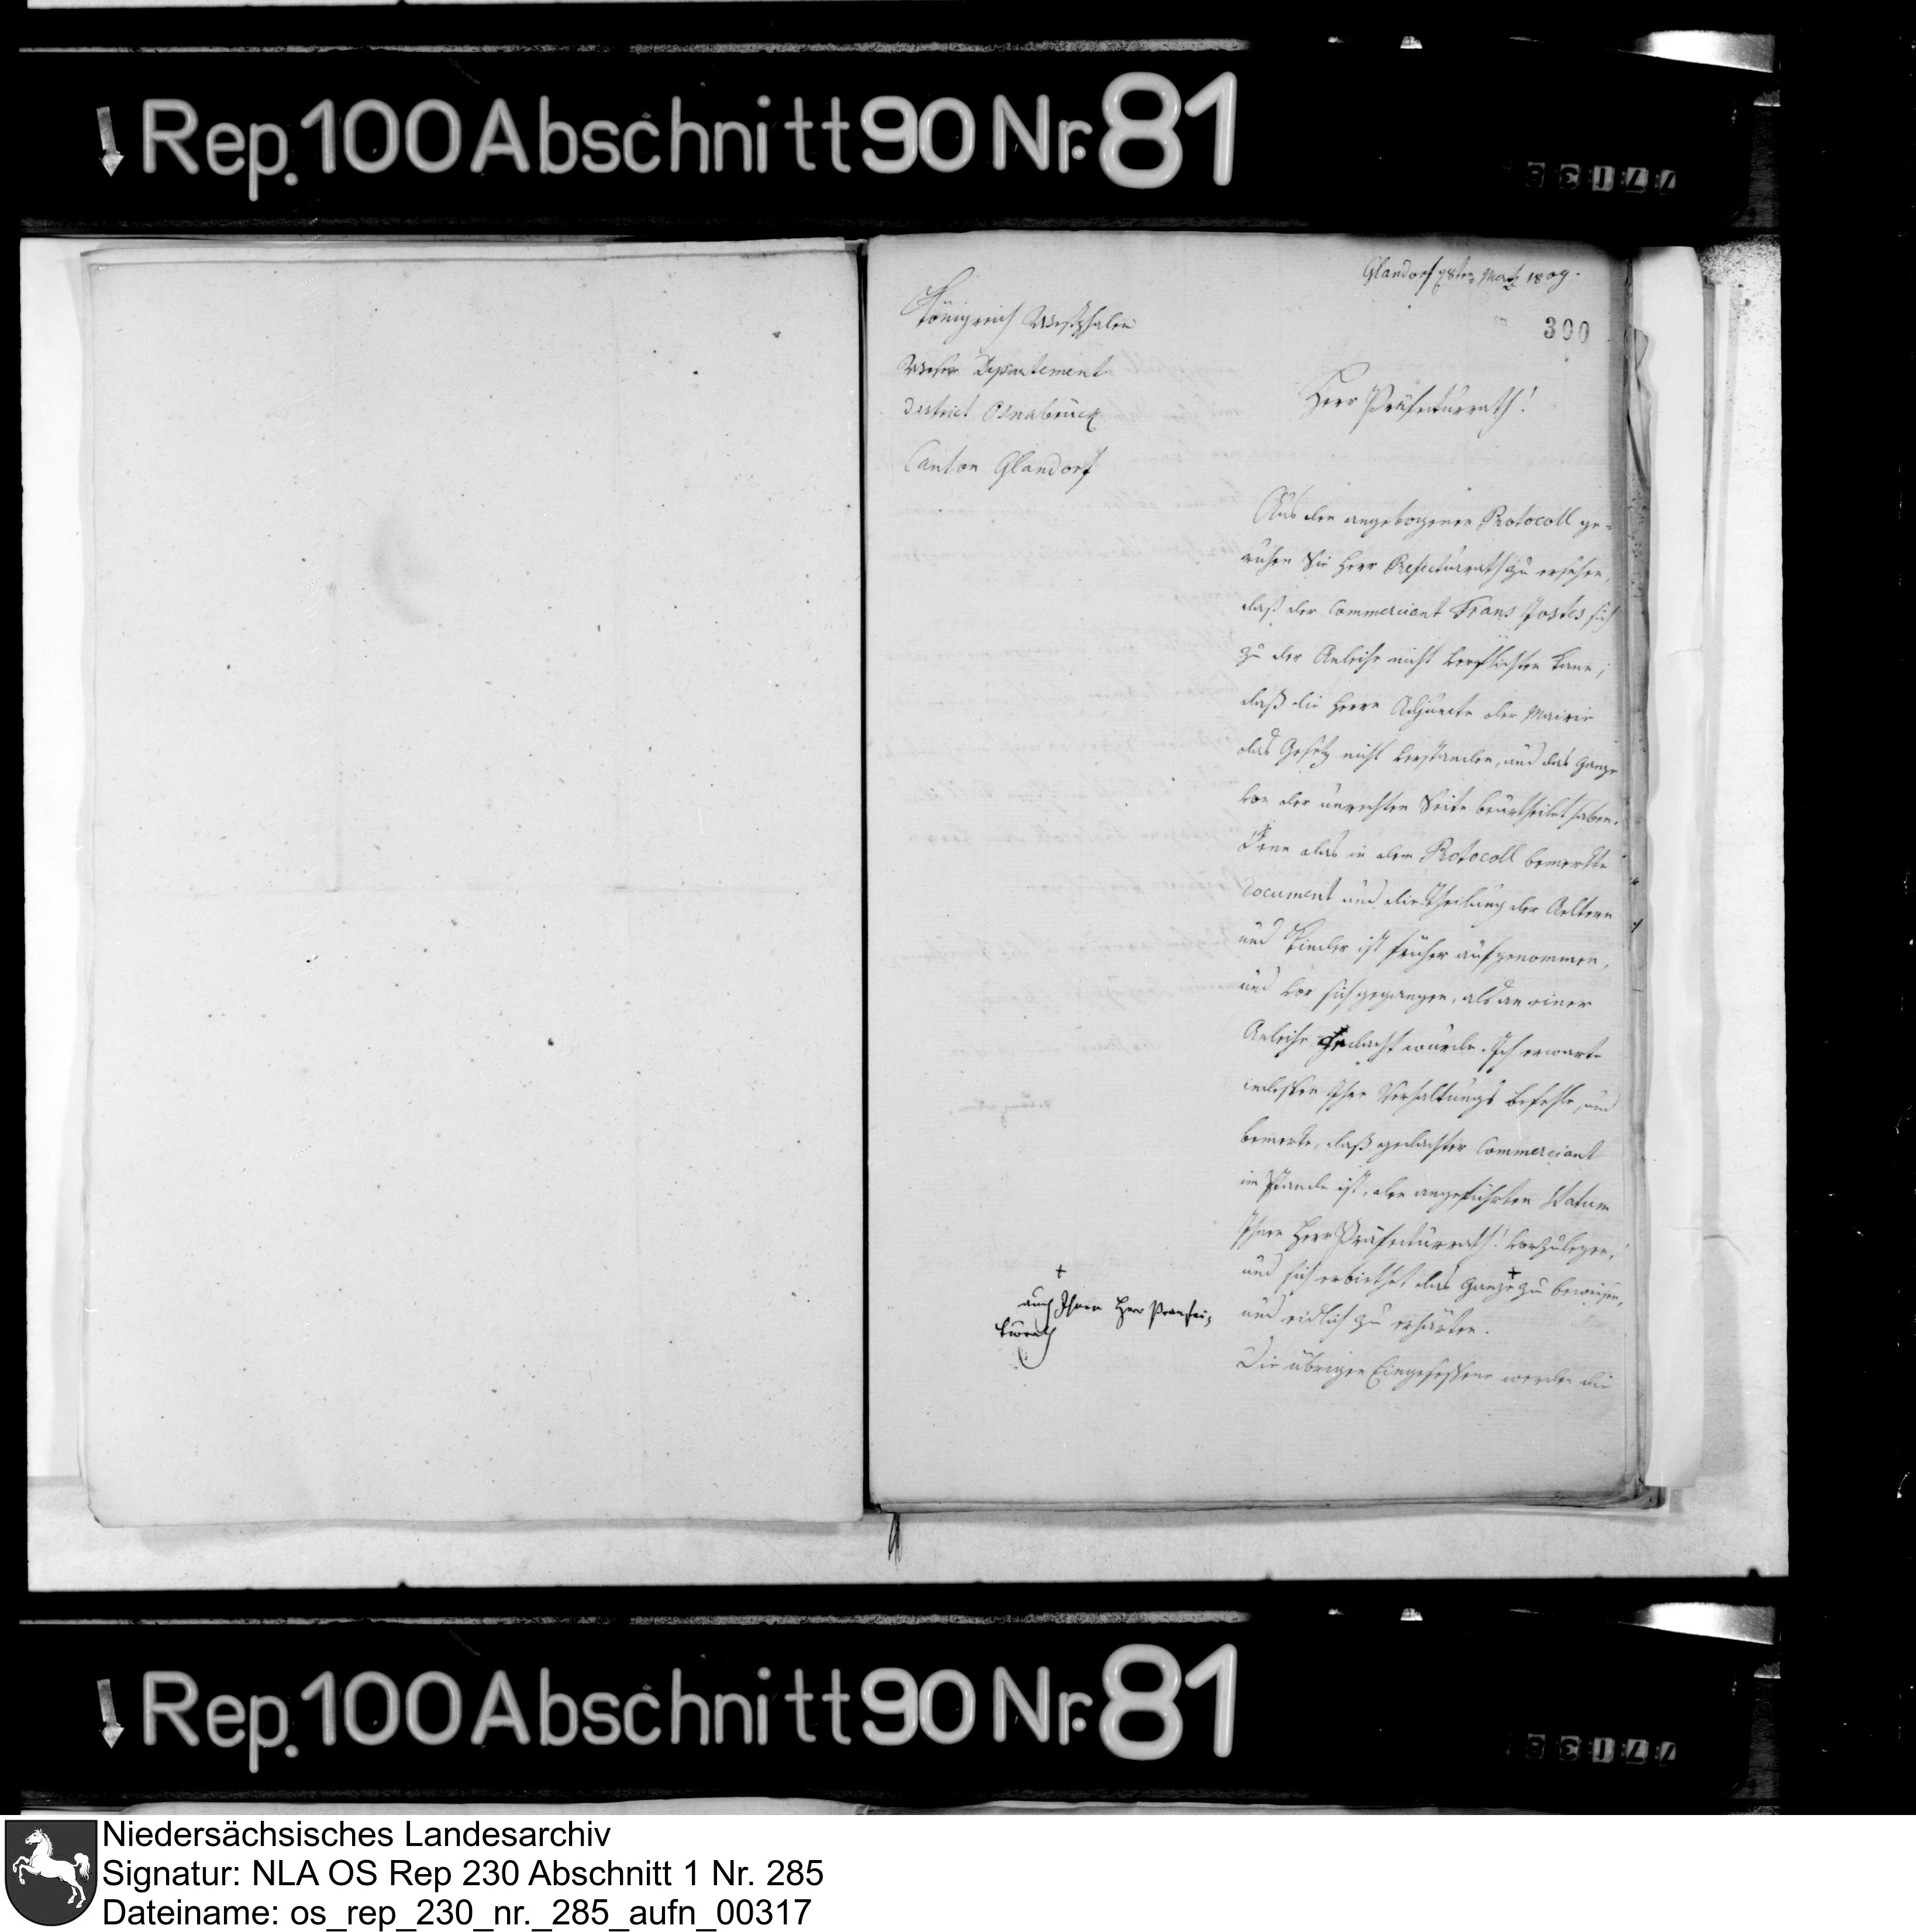 Rep. 100 Abschnitt 90 Nr. 81
Glandorf 18ten Mertz 1809.
390
Königreich Westphalen
Weser Departement
District Osnabrück
Canton Glandorf
Herr Präfecturrath!
Aus den angebogenen Protocoll ge-
ruhen Sie Herr Prefecturrath zu ersehen,
daß der Commerciant Frans Jostes sich
zu der Anleihe nicht verpflichten kann;
daß die Herrn Adjuncte der Mairie
das Gesetz nicht verstanden, und das Ganze
von der unrechten Seite beurtheilet haben.
Denn das in dem Protocoll bemerkte
Document und die Theilung der Aeltern
und Kinder ist früher aufgenommen,
und vor sich gegangen, als an einer
Anleihe gedacht wurde. Ich erwarte
indessen Ihre Verhaltungs befehle, und
bemerke, daß gedachter Commerciant
im Stande ist, den angeführten Statum
Ihnen Herr Präfecturrath! vorzulegen,
und sich erbiethet das Ganze + zu beweisen,
und eidlich zu erhärten.
Die übrigen Eingesessene werden die
+
auch Ihnen Herr
Rep. 100 Abschnitt 90 Nr. 81
Niedersächsisches Landesarchiv
Signatur: NLA OS Rep 230 Abschnitt 1 Nr. 285
Dateiname: os_rep_230_nr._285_aufn_00317